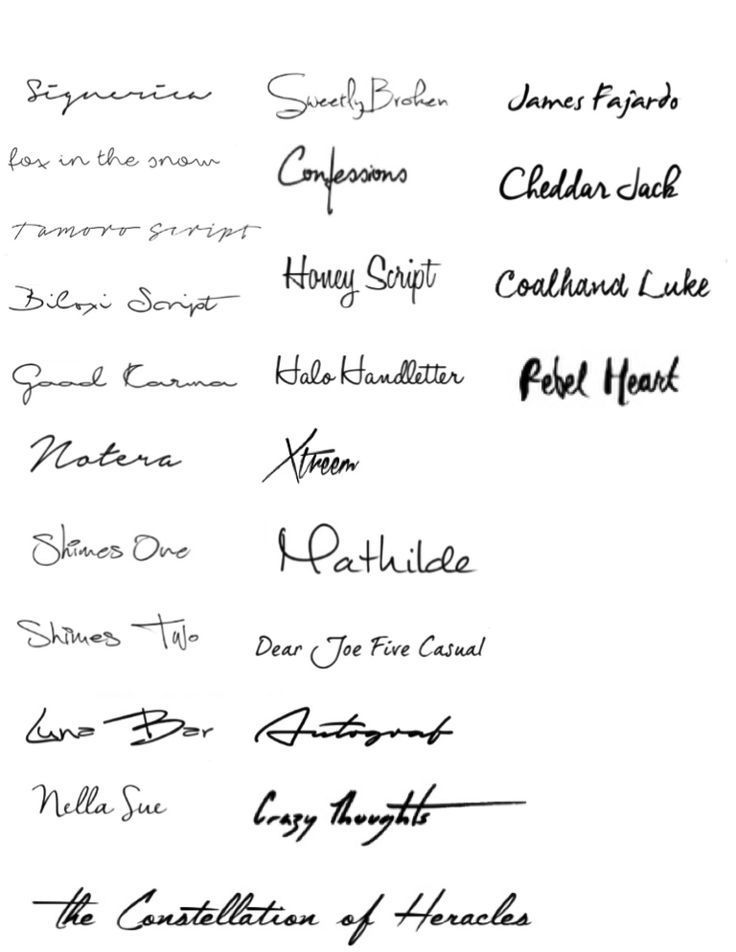 Signerica
fox in the snow
Tamoro Script
Biloxi Script
Good Karma
Notera
Shimes One
Shimes Two
Luna Bar
Nella Sue
Sweetly Broken
Confessions
Honey Script
Halo Handletter
Xtreem
Mathilde
Dear Joe Five Casual
Autograf
Crazy Thoughts
James Fajardo
Cheddar Jack
Coalhand Luke
Rebel Heart
the Constellation of Heracles